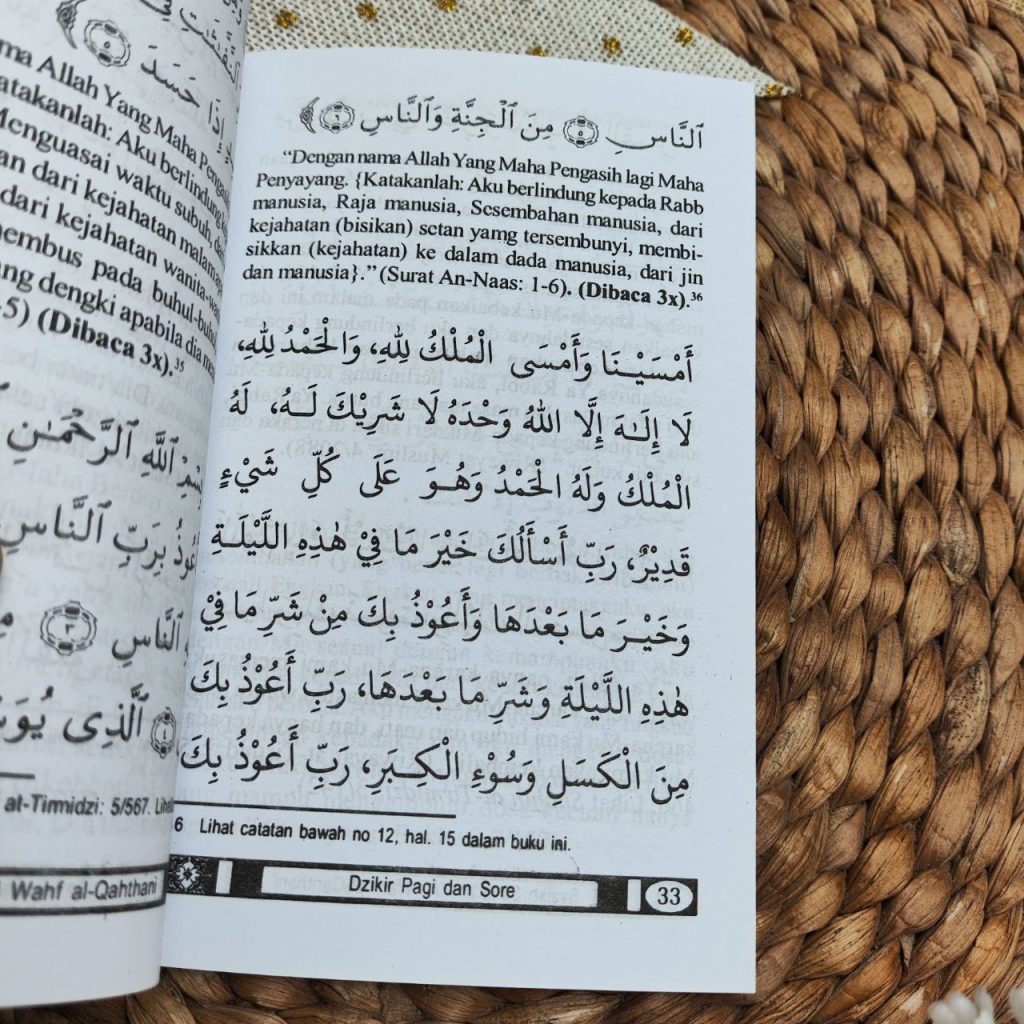 إِذَا حَسَدَ ۝٥
ma Allah Yang Maha Pengasih
atakanlah: Aku berlindung
Menguasai waktu subuh, dari
an dari kejahatan malam
dari kejahatan wanita-wa
embus pada buhul-buhu
ng dengki apabila dia
-5) (Dibaca 3x).35
ٱللَّهِ ٱلرَّحْمَٰنِ
بِرَبِّ ٱلنَّاسِ
ٱلنَّاسِ ۝٣
۝٤ ٱلَّذِى
al-Tirmidzi: 5/567.
Wahf al-Qahthani
ٱلنَّاسِ ۝٥ مِنَ ٱلْجِنَّةِ وَٱلنَّاسِ ۝٦
“Dengan nama Allah Yang Maha Pengasih lagi Maha
Penyayang. {Katakanlah: Aku berlindung kepada Rabb
manusia, Raja manusia, Sesembahan manusia, dari
kejahatan (bisikan) setan yamg tersembunyi, membi-
sikkan (kejahatan) ke dalam dada manusia, dari jin
dan manusia}.” (Surat An-Naas: 1-6). (Dibaca 3x).36
أَمْسَيْنَا وَأَمْسَى الْمُلْكُ لِلَّهِ، وَالْحَمْدُ لِلَّهِ،
لَا إِلَهَ إِلَّا اللهُ وَحْدَهُ لَا شَرِيْكَ لَهُ، لَهُ
الْمُلْكُ وَلَهُ الْحَمْدُ وَهُوَ عَلَى كُلِّ شَيْءٍ
قَدِيْرٌ، رَبِّ أَسْأَلُكَ خَيْرَ مَا فِيْ هٰذِهِ اللَّيْلَةِ
وَخَيْرَ مَا بَعْدَهَا وَأَعُوْذُ بِكَ مِنْ شَرِّ مَا فِيْ
هٰذِهِ اللَّيْلَةِ وَشَرِّ مَا بَعْدَهَا، رَبِّ أَعُوْذُ بِكَ
مِنَ الْكَسَلِ وَسُوْءِ الْكِبَرِ، رَبِّ أَعُوْذُ بِكَ
6 Lihat catatan bawah no 12, hal. 15 dalam buku ini.
Dzikir Pagi dan Sore 33